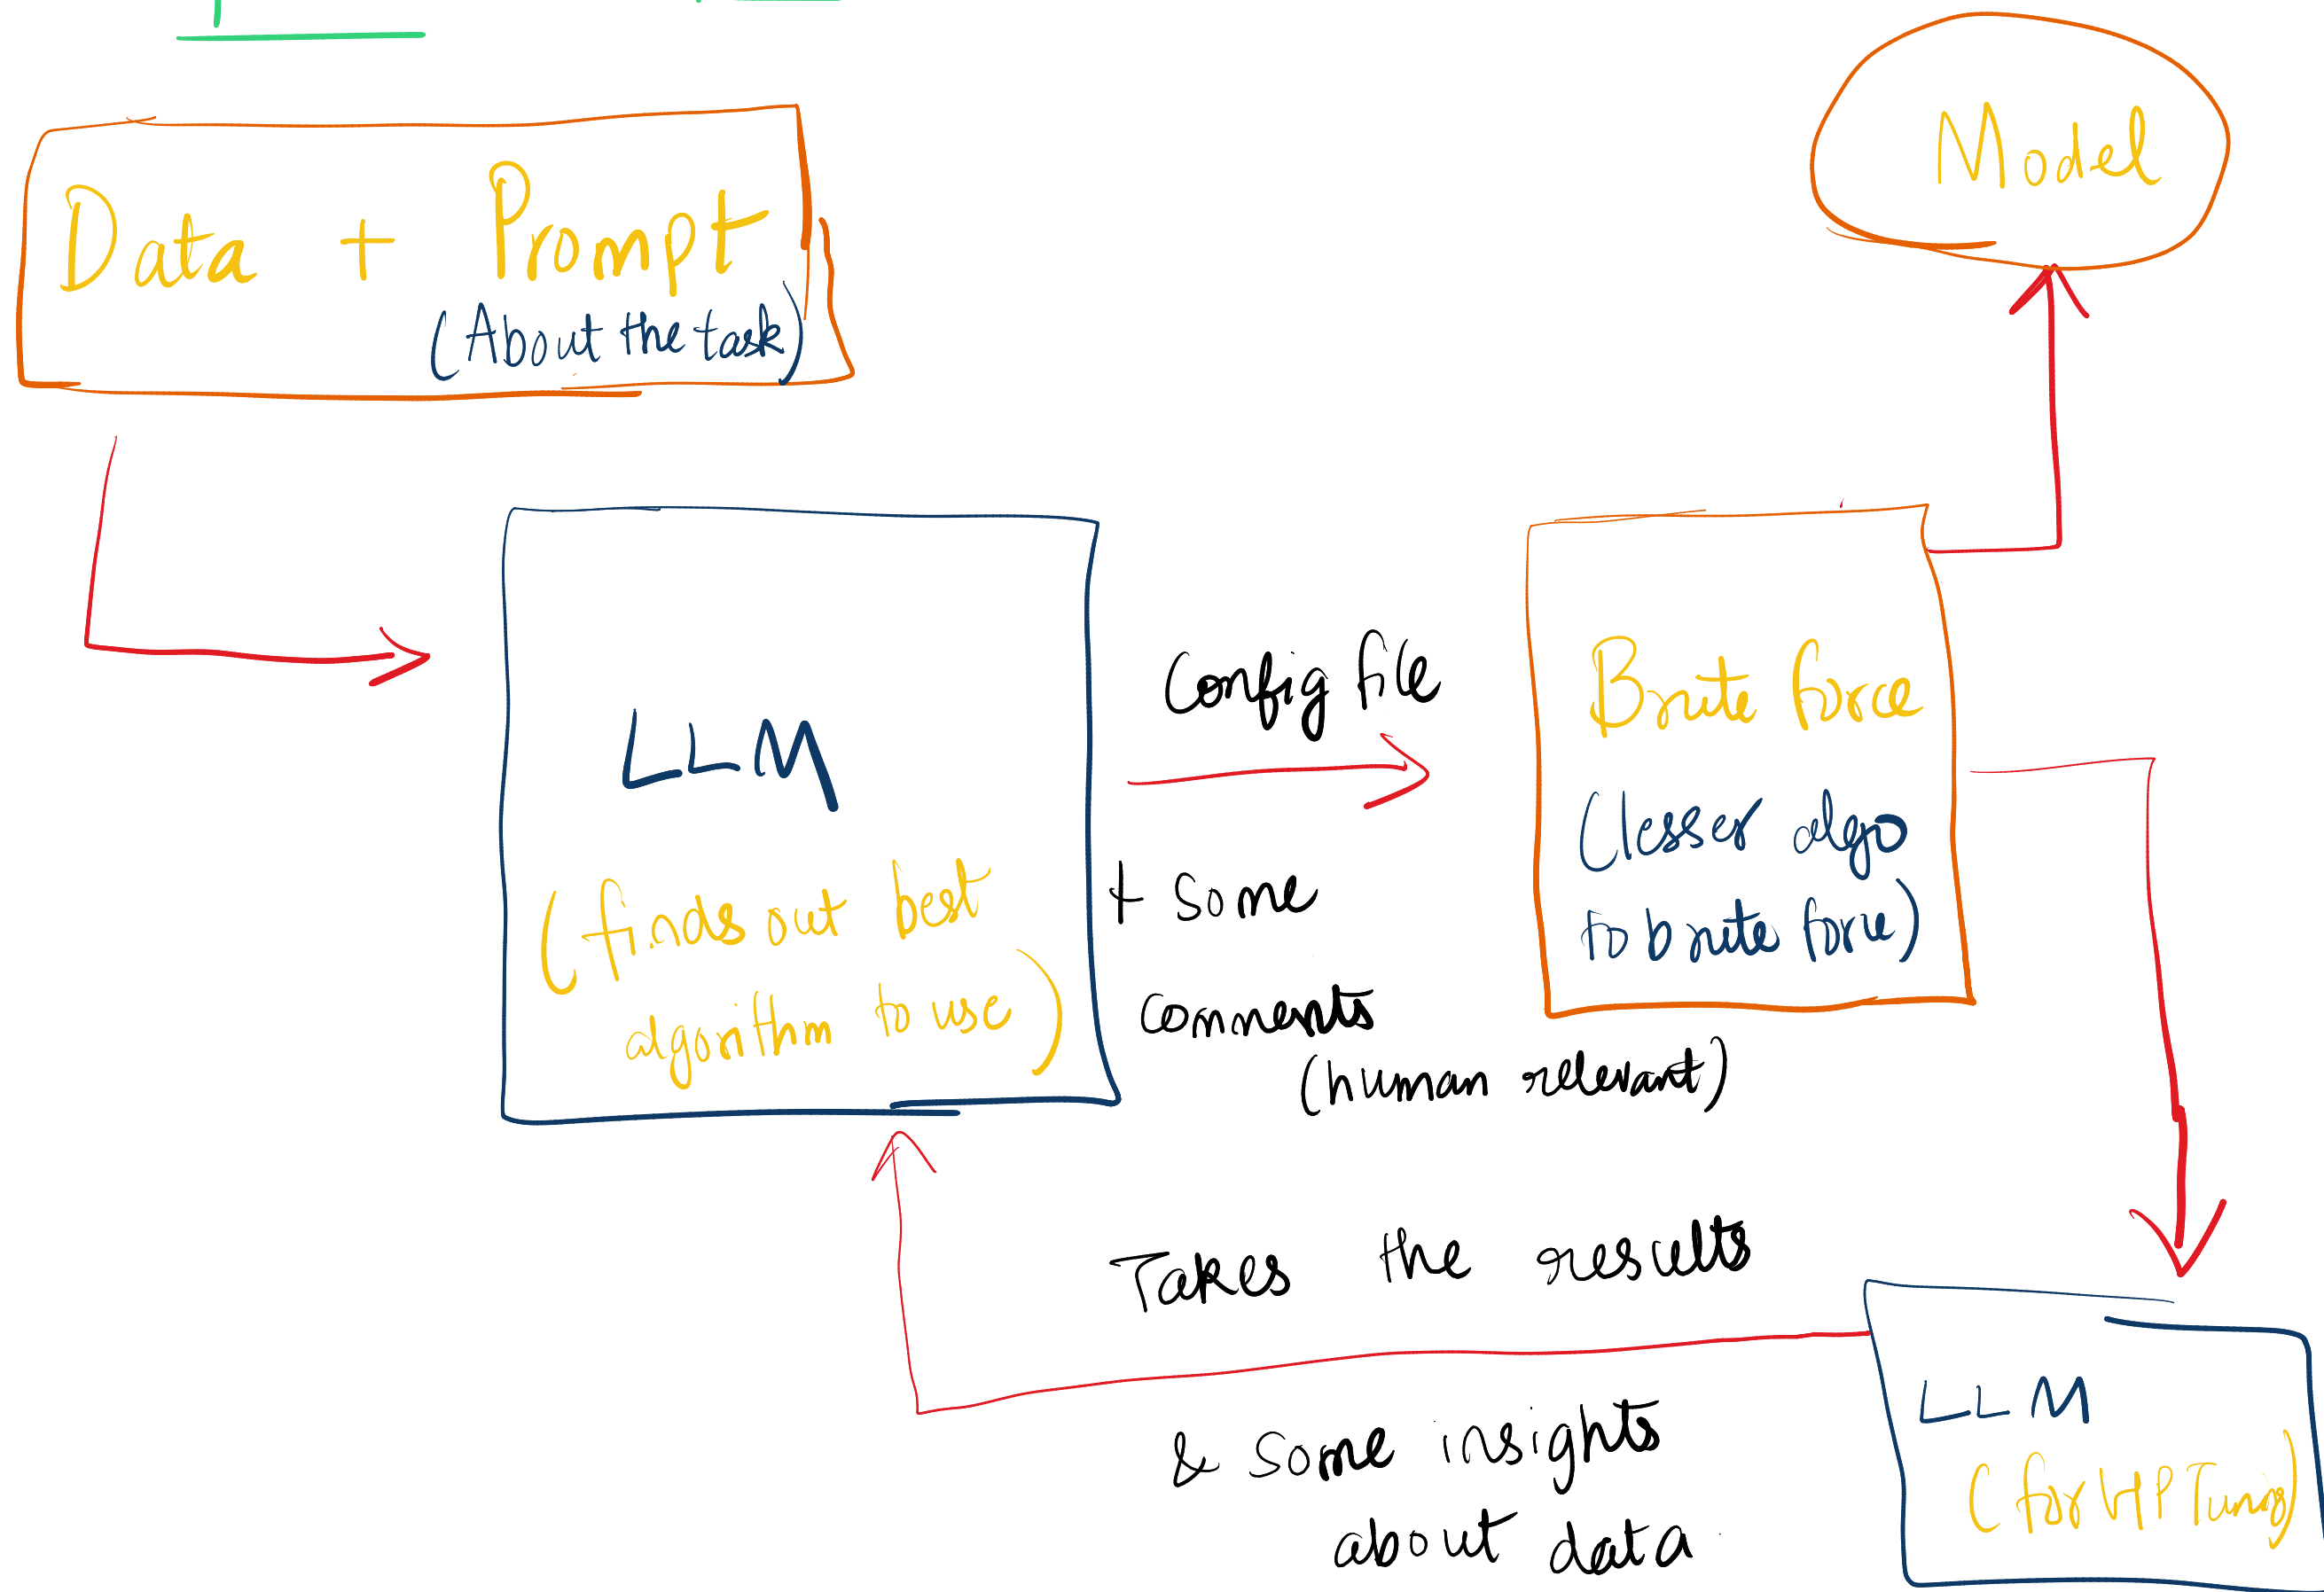 Data + Prompt
(About the task)
Model
LLM
(finds out best
algorithm to use)
Config file
+ some
comments
(human relevant)
Brute force
(lesser algo
to brute force)
Takes the results
& some insights
about data
LLM
(for HP Tuning)